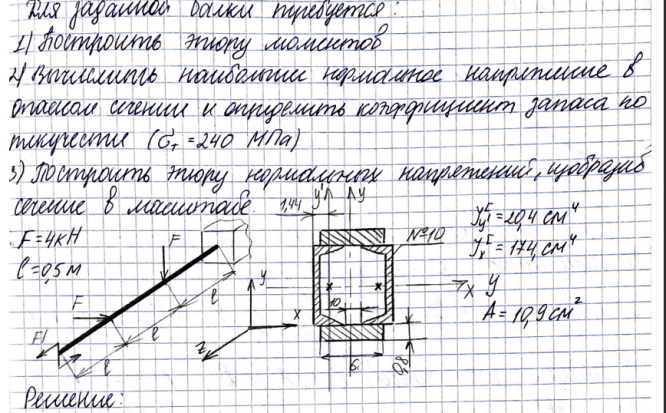 Для заданной балки требуется:
1) Построить эпюру моментов
2) Вычислить наибольшее нормальное напряжение в
опасном сечении и определить коэффициент запаса по
текучести (σт = 240 МПа)
3) Построить эпюру нормальных напряжений, изобразив
сечение в масштабе.
F = 4кН
l = 0,5 м
F
F
F
l
l
l
y
x
z
1,44
y'
y
№10
x
y
10
6
0,8
= 20,4 см⁴
= 174, см⁴
A = 10,9 см²
Решение: